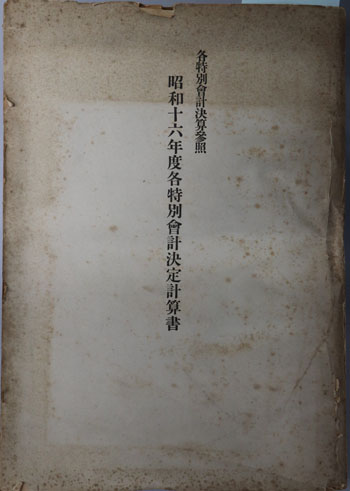 各特別會計決算參照
昭和十六年度各特別會計決定計算書